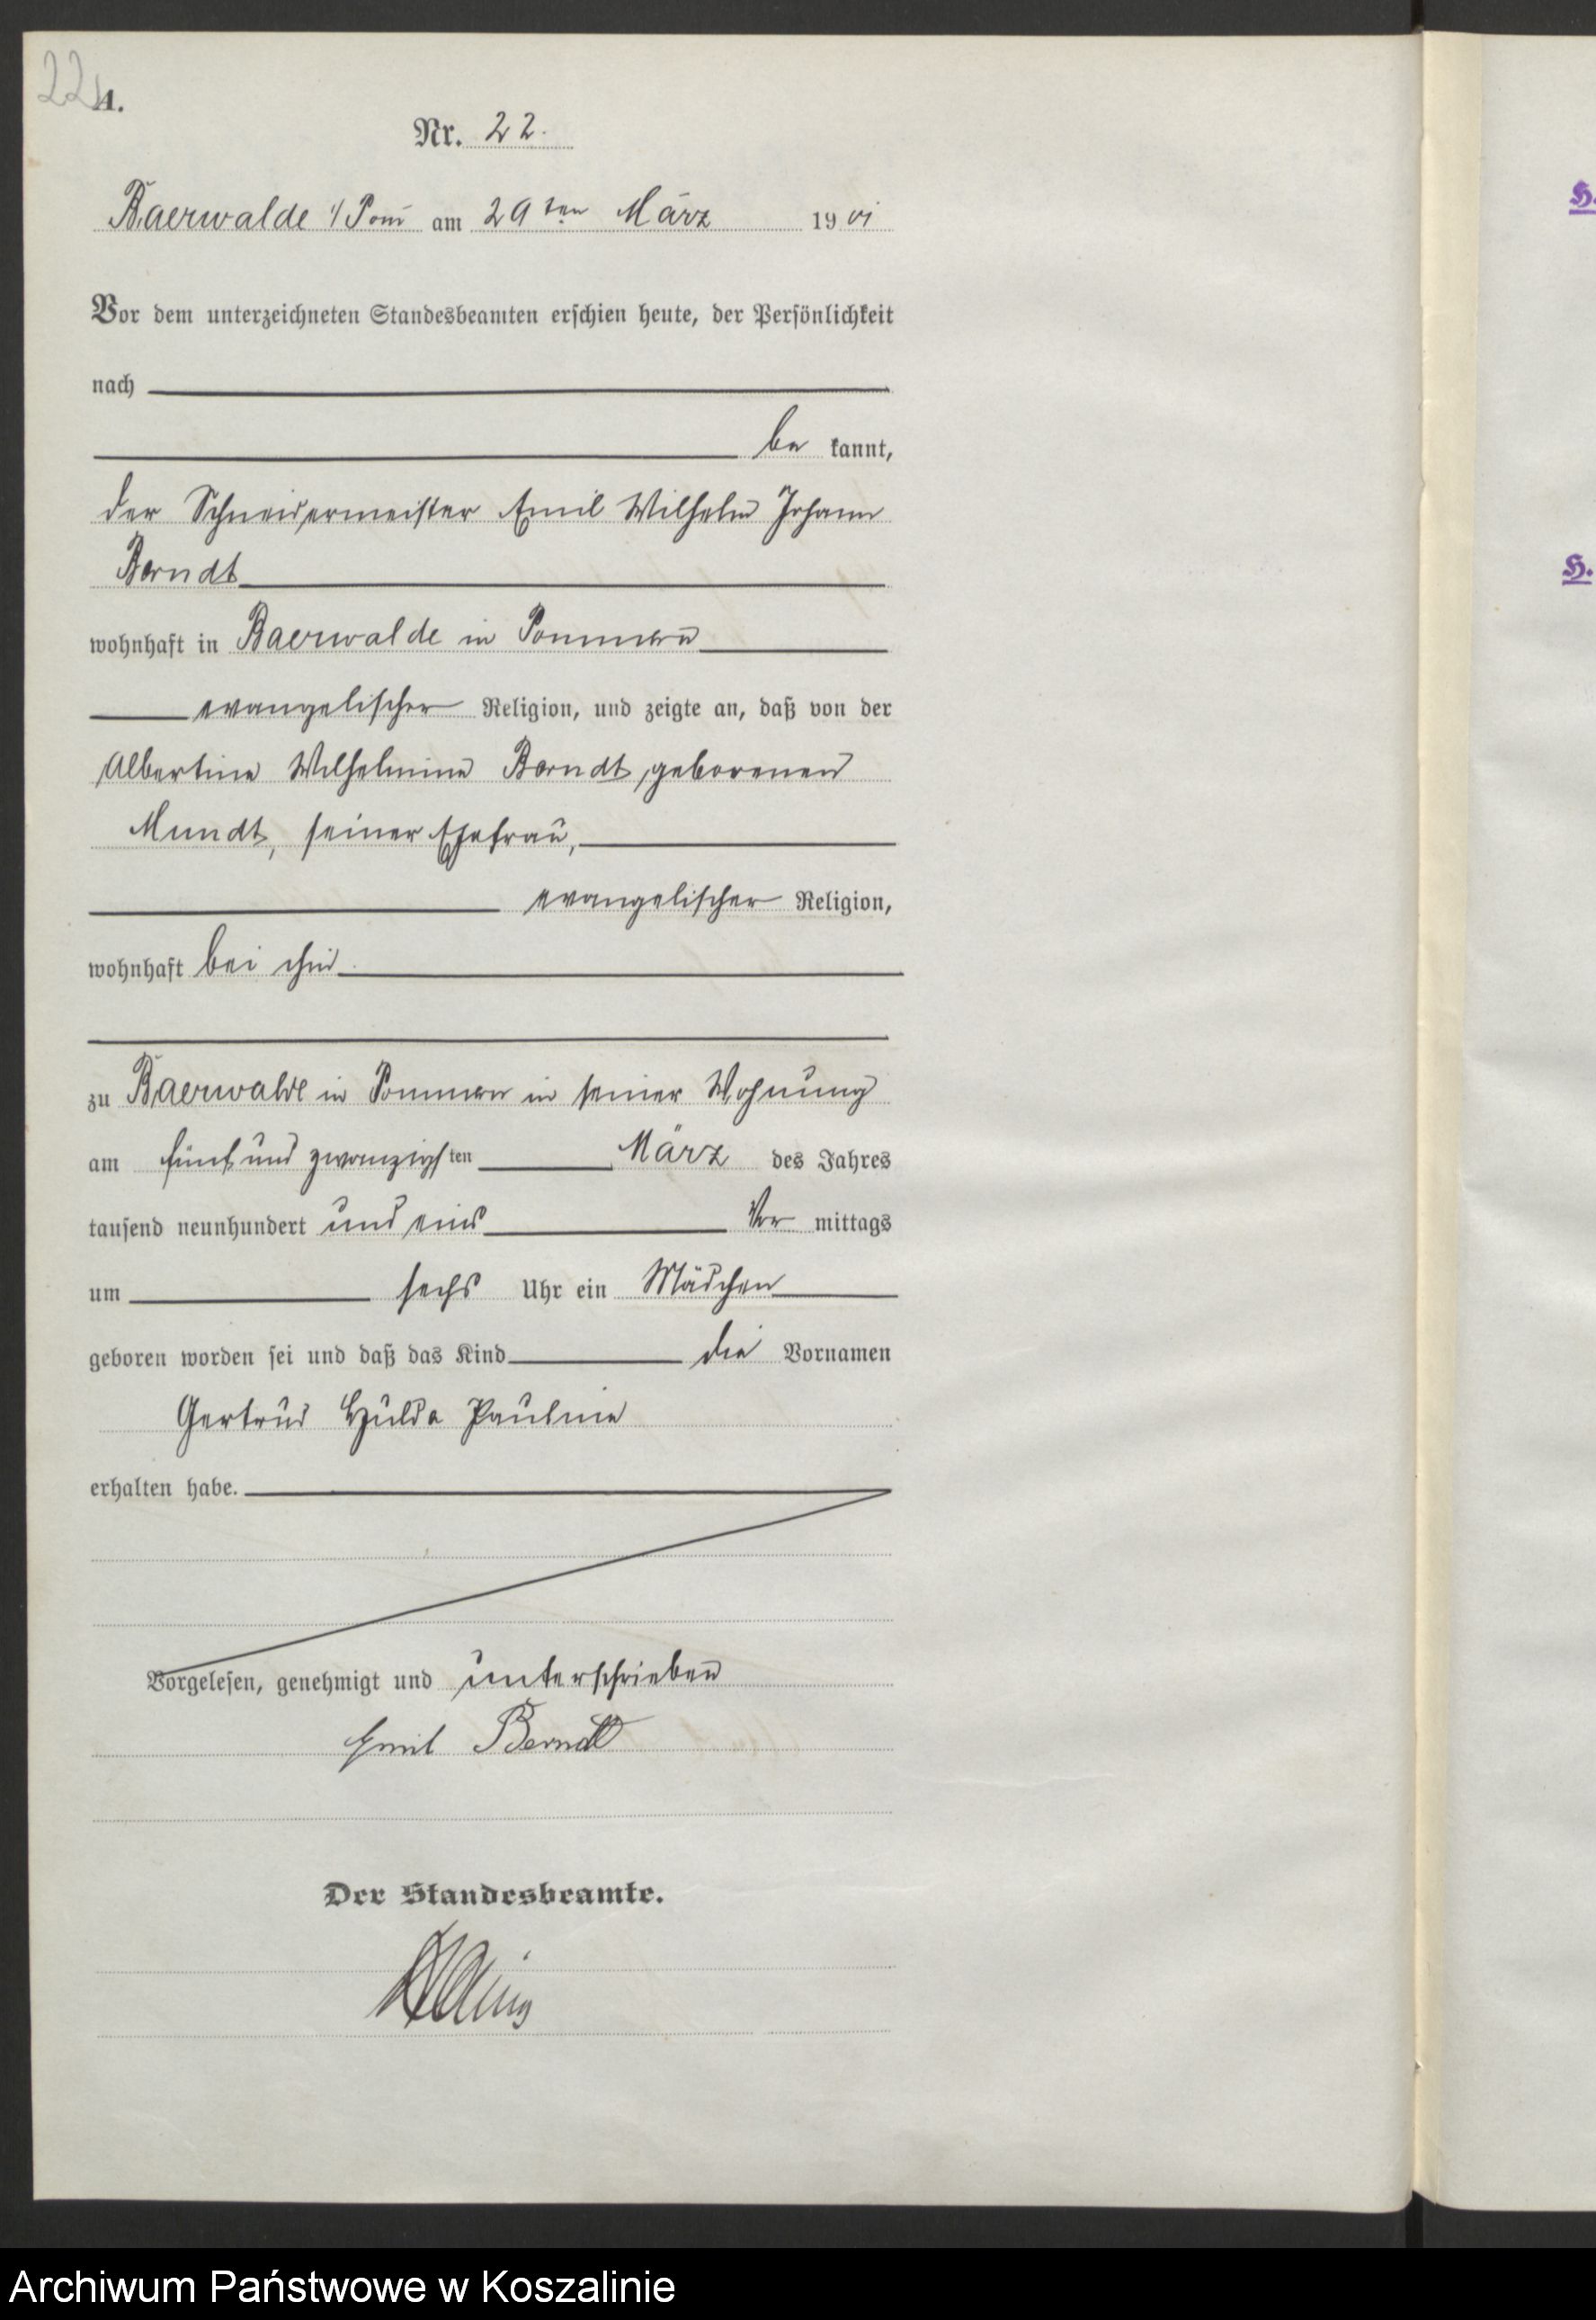 22
A.
Nr. 22.
Baerwalde i/Pom am 29ten März 1901
Vor dem unterzeichneten Standesbeamten erschien heute, der Persönlichkeit
nach
be kannt,
der Schneidermeister Emil Wilhelm Johann
Berndt
wohnhaft in Baerwalde in Pommern
evangelischer Religion, und zeigte an, daß von der
Albertine Wilhelmine Berndt, geborenen
Mundt, seiner Ehefrau,
evangelischer Religion,
wohnhaft bei ihm
zu Baerwalde in Pommern in seiner Wohnung
am fünf und zwanzigsten März des Jahres
tausend neunhundert und eins Vor mittags
um sechs Uhr ein Mädchen
geboren worden sei und daß das Kind die Vornamen
Gertrud Hulda Pauline
erhalten habe.
Vorgelesen, genehmigt und unterschrieben
Emil Berndt
Der Standesbeamte.
H.
H.
Archiwum Państwowe w Koszalinie